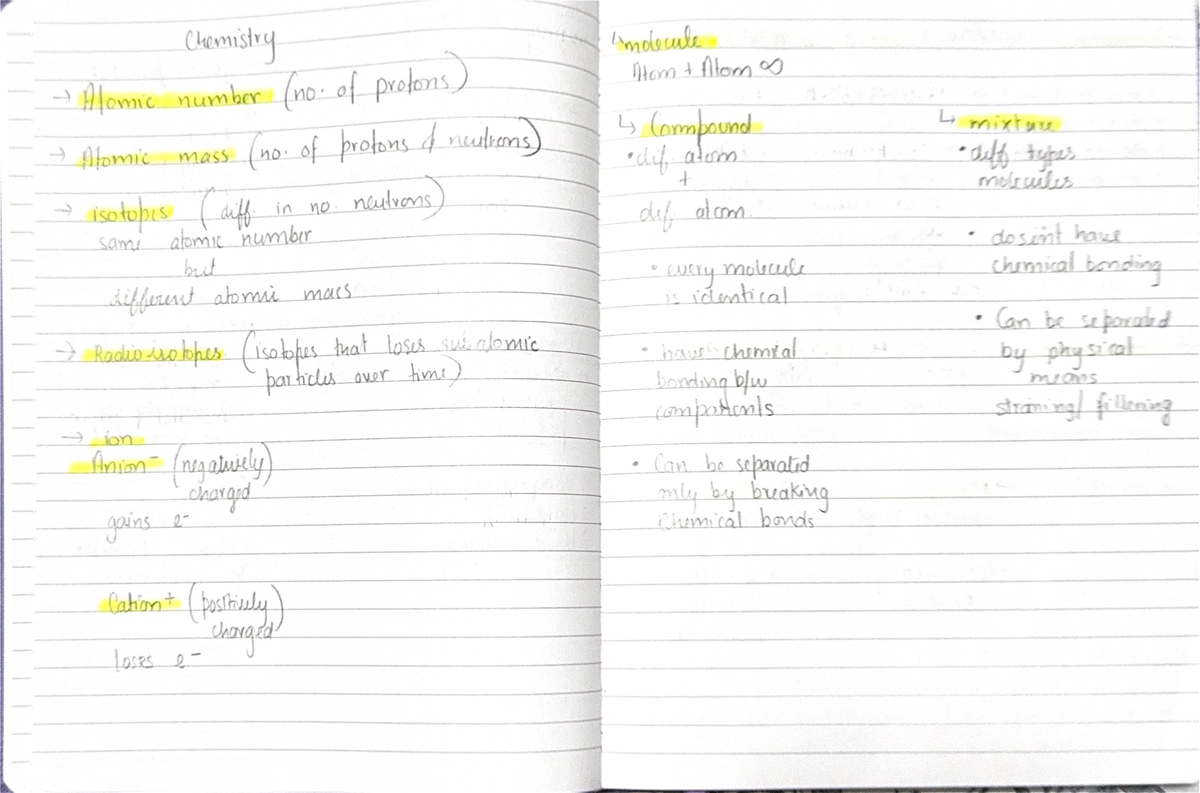 Chemistry
→ Atomic number (no. of protons)
→ Atomic mass (no. of protons & neutrons)
→ isotopes (diff. in no. neutrons)
same atomic number
but
different atomic mass
→ Radio-isotopes (isotopes that loses subatomic
particles over time)
→ ion
Anion⁻ (negatively
charged)
gains e⁻
Cation⁺ (positively
charged)
loses e⁻
↳ molecule
Atom + Atom ∞
↳ Compound
• dif. atom
+
dif. atom
• every molecule
is identical
• have chemial
bonding b/w
components
• Can be separated
only by breaking
Chemical bonds
↳ mixture
• diff types
molecules
• dosent have
chemical bonding
• Can be separated
by physical
means
straning/ filtering